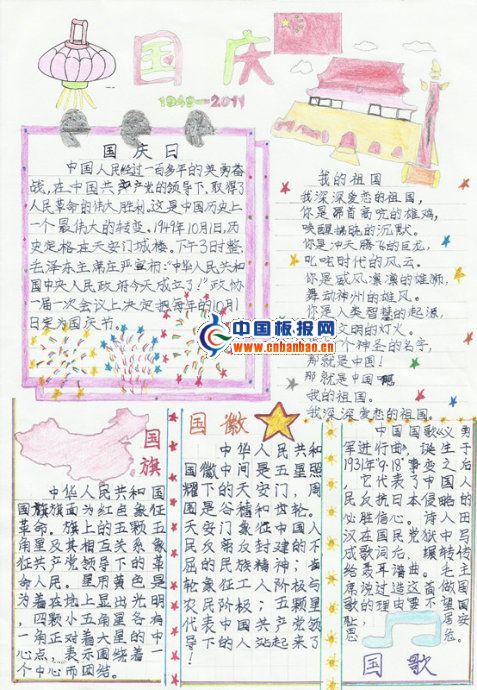 国庆
1949—2011
国庆日
中国人民经过一百多年的英勇奋
战,在中国共产党的领导下,取得了
人民革命的伟大胜利。这是中国历史上
一个最伟大的转变。1949年10月1日,历
史定格在天安门城楼。下午3时整,
毛泽东主席庄严宣布:“中华人民共和
国中央人民政府今天成立了!”政协
一届一次会议上决定把每年的10月1
日定为国庆节。
我的祖国
我深深爱恋的祖国,
你是昂首高亢的雄鸡,
唤醒拂晓的沉默。
你是冲天腾飞的巨龙,
叱咤时代的风云。
你是威风凛凛的雄狮,
舞动神州的雄风。
你是人类智慧的起源,
文明的灯火。
个神圣的名字,
那就是中国!
那就是中国啊,
我的祖国。
我深深爱恋的祖国。
中国板报网
www.cnbanbao.cn
国旗
中华人民共和国
国旗旗面为红色象征
革命。旗上的五颗五
角星及其相互关系象
征共产党领导下的革
命人民。星用黄色是
为着在地上显出光明
,四颗小五角星各有
一角正对着大星的中
心点,表示围绕着一
个中心而团结。
国徽
中华人民共和
国徽中间是五星照
耀下的天安门,周
围是谷穗和齿轮。
天安门象征中国人
民反帝反封建的不
屈的民族精神;齿
轮象征工人阶级与
农民阶级;五颗星
代表中国共产党领
导下的人站起来了
!
中国国歌《义勇
军进行曲》,诞生于
1931年“9·18”事变之后
,它代表了中国人
民反抗日本侵略的
必胜信心。诗人田
汉在国民党狱中写
成歌词元,辗转传
给聂耳谱曲。毛主
席说过选这首做国
歌的理由要不望国
国歌